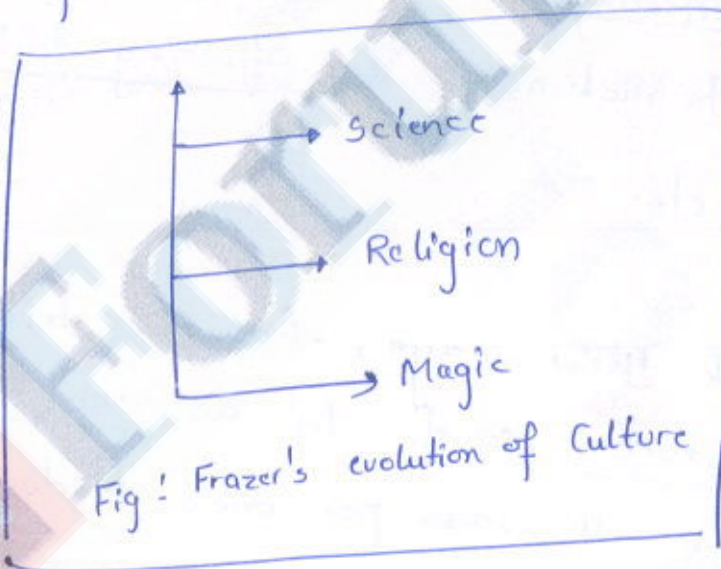 Science
Religion
Magic
Fig: Frazer's evolution of Culture
Forum